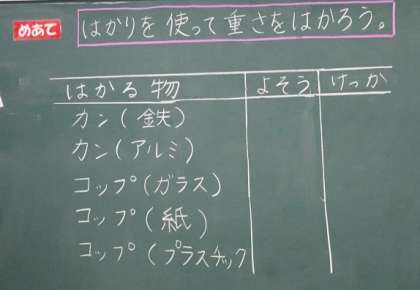 めあて はかりを使って重さをはかろう。
はかる物 よそう けっか
カン(鉄)
カン(アルミ)
コップ(ガラス)
コップ(紙)
コップ(プラスチック